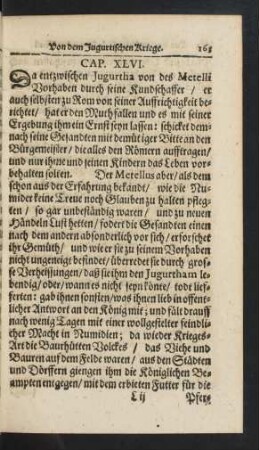 Von dem Jugurtischen Kriege. 163
CAP. XLVI.
Da entzwischen Jugurtha von des Metelli
Vorhaben durch seine Kundschaffer / er
auch selbsten zu Rom von seiner Auffrichtigkeit be-
richtet / hat er den Muth fallen und es mit seiner
Ergebung ihm ein Ernst seyn lassen: schicket dem-
nach seine Gesandten mit demütiger Bitte an den
Bürgemeister / die alles den Römern aufftragen/
und nur ihme und seinen Kindern das Leben vor-
behalten solten. Der Metellus aber / als dem
schon aus der Erfahrung bekandt / wie die Nu-
midier keine Treue noch Glauben zu halten pfleg-
ten / so gar unbeständig waren / und zu neuen
Händeln Lust hetten / fodert die Gesandten einen
nach dem andern absonderlich vor sich / erforschet
ihr Gemüth / und wie er sie zu seinem Vorhaben
nicht ungeneigt befindet / überredet sie durch gros-
se Verheissungen / daß sie ihm den Jugurtham le-
bendig / oder / wann es nicht seyn könte / todt lief-
ferten: gab ihnen sonsten / was ihnen lieb in offent-
licher Antwort an den König mit; und fält drauff
nach wenig Tagen mit einer wollgestelter feindli-
cher Macht in Numidien; da wieder Krieges-
Art die Baurhütten Volckes / das Viehe und
Bauren auf dem Felde waren / aus den Städten
und Dörffern giengen ihm die Königlichen Be-
ampten entgegen / mit dem erbieten Futter für die
L ij Pfer-